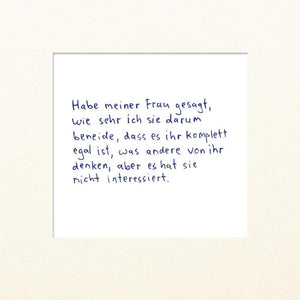 Habe meiner Frau gesagt,
wie sehr ich sie darum
beneide, dass es ihr komplett
egal ist, was andere von ihr
denken, aber es hat sie
nicht interessiert.